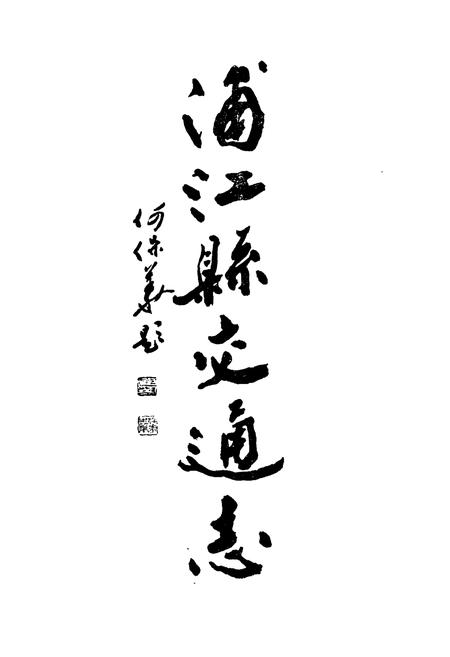 浦江縣交通志
何保華題